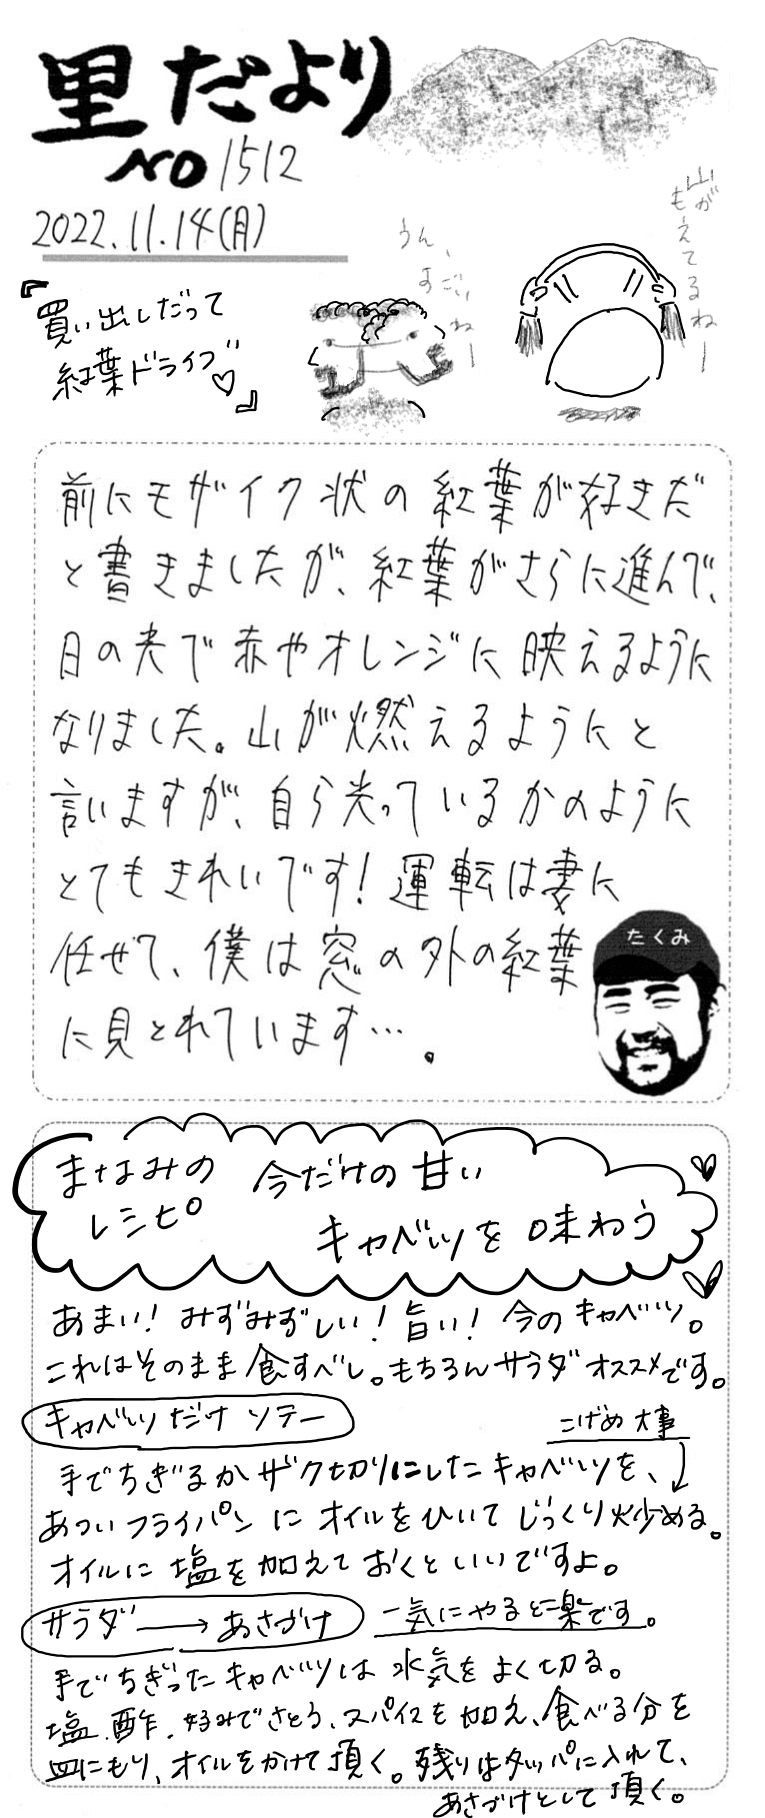 里だより
NO 1512
2022.11.14(月)
山が
もえてるねー
うん、
すごいねー
『買い出しだって
紅葉ドライブ♡』
前にモザイク状の紅葉が好きだ
と書きましたが、紅葉がさらに進んで、
日の光で赤やオレンジに映えるように
なりました。山が燃えるようにと
言いますが、自ら光っているかのように
とてもきれいです!運転は妻に
任せて、僕は窓の外の紅葉
に見とれています…。
たくみ
まなみの 今だけの甘い
レシピ キャベツを味わう
あまい!みずみずしい!旨い!今のキャベツ。
これはそのまま食すべし。もちろんサラダオススメです。
キャベツだけソテー
こげめ大事
手でちぎるかザク切りにしたキャベツを、
あついフライパンにオイルをひいてじっくり炒める。
オイルに塩を加えておくといいですよ。
サラダ→あさづけ 一気にやると楽です。
手でちぎったキャベツは水気をよく切る。
塩、酢、好みでさとう、スパイスを加え、食べる分を
皿にもり、オイルをかけて頂く。残りはタッパに入れて、
あさづけとして頂く。